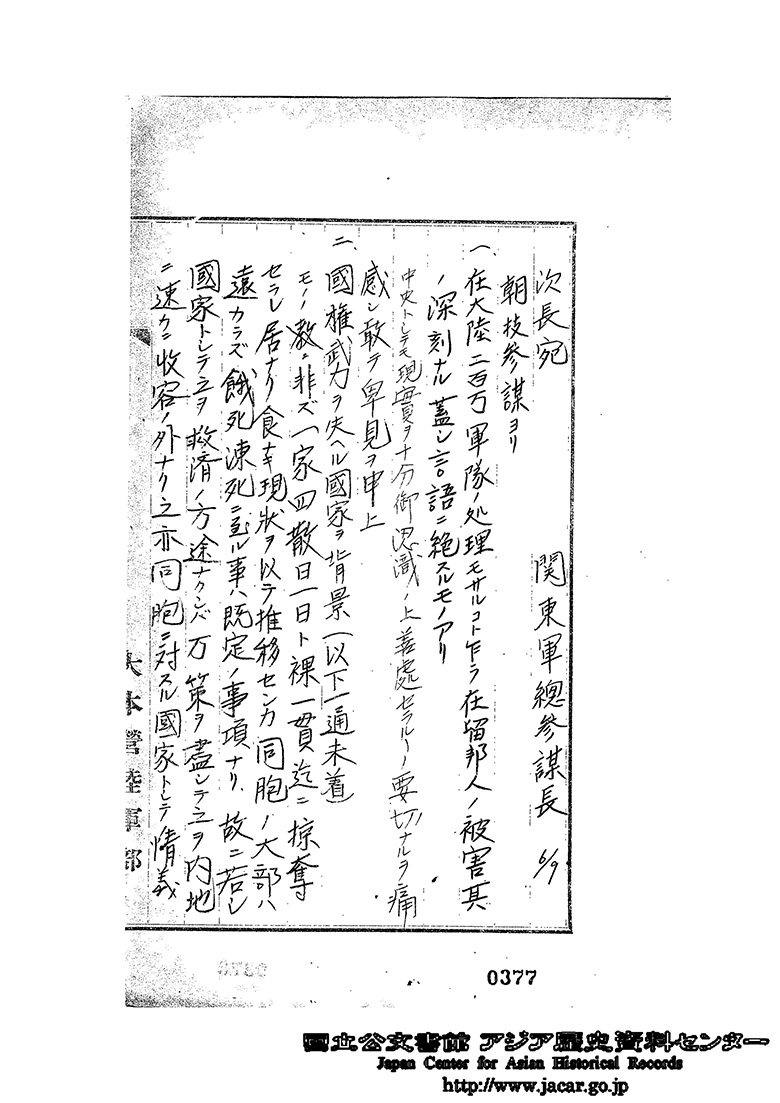 次長宛　関東軍總参謀長　6/9
朝枝参謀ヨリ
一、在大陸二百万軍隊ノ処理モサルコト乍ラ在留邦人ノ被害其
ノ深刻ナル蓋シ言語ニ絶スルモノアリ
中央トシテモ現實ヲ十分御認識ノ上善處セラルヽノ要切ナルヲ痛
感シ敢テ卑見ヲ申上
二、國権武力ヲ失ヘル國家ヲ背景(以下一通未着)
モノノ数ニ非ズ一家四散日一日ト裸一貫迄ニ掠奪
セラレ居ナリ食ナキ現状ヲ以テ推移センカ同胞ノ大部ハ
遠カラズ餓死凍死ニ至ル事ハ既定ノ事項ナリ、故ニ若シ
國家トシテ之ヲ救済ノ方途ナクンバ万策ヲ盡シテ之ヲ内地
ニ速カニ收容ノ外ナク之亦同胞ニ対スル國家トシテ情義
大本營陸軍部
0377
國立公文書館 アジア歴史資料センター
Japan Center for Asian Historical Records
http://www.jacar.go.jp